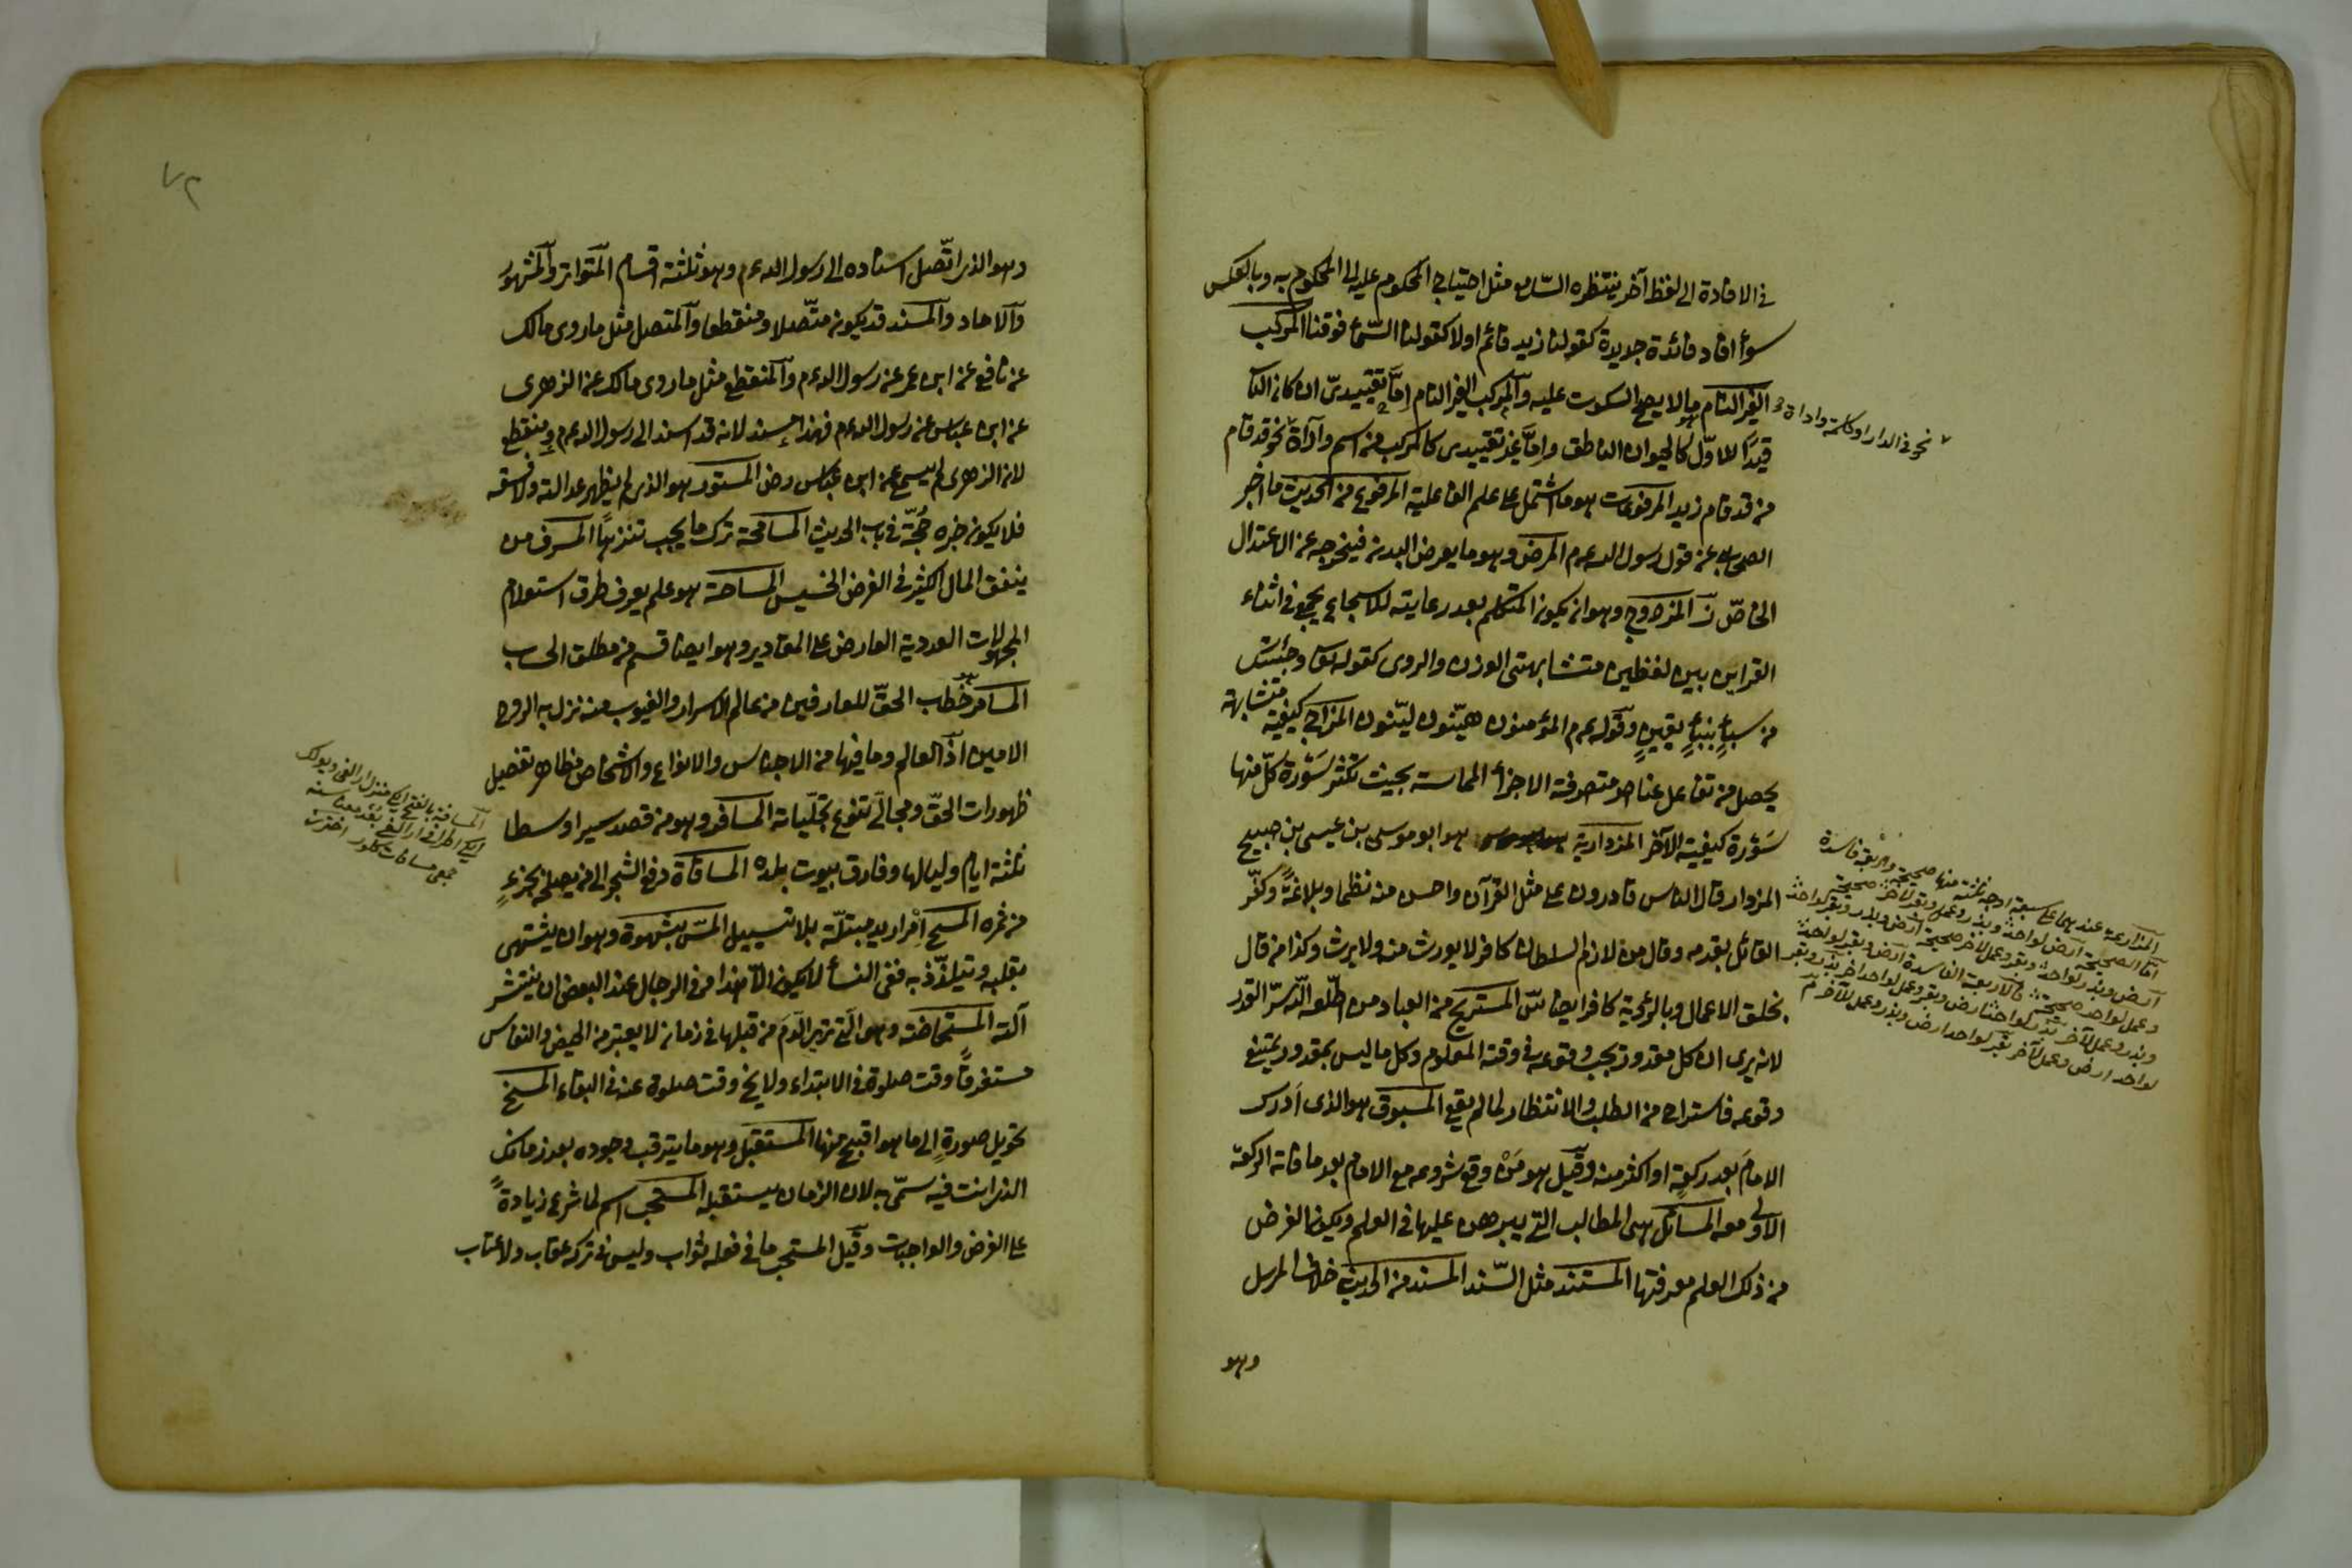 في الافادة الى لفظ آخر ينتظره السّامع مثل احتياج المحكوم عليه الى المحكوم به وبالعكس
سواء افاد فائدة جديدة كقولنا زيد قائم اولا كقولنا السّماء فوقنا المركب
الغير التام ما لا يصح السكوت عليه والمركب الغير التام اِمّا تقييديّ ان كان الثاني
نحو في الدار او كلمة واداة
قيدًا للاوّل كالحيوان الناطق واِمّا غير تقييدى كالمركب من اسم واداة نحو قد قام
من قد قام زيد المرفوعات هو ما اشتمل على علم الفاعلية المرفوع من الحديث ما اخبر
الصحابي عن قول رسول الله عم المرض وهو ما يعرض البدن فيخرجه عن الاعتدال
الخاصّ المزدوج وهو ان يكون المتكلم بعد رعايته للاسجاع يجمع في اثناء
القراين بين لفظين متشابهتى الوزن والروى كقوله تعا وجئتك
من سبأٍ بنبأٍ يقينٍ وقوله عم المؤمنون هيّنون ليّنون المزاج كيفية متشابهة
يحصل من تفاعل عناصر متصرفة الاجزاء المماسة بحيث تكسر سَوْرة كلّ منها
سَوْرة كيفية الآخر المزدارية هو ابو موسى بن عيسى بن صبيح
المزدار قال الناس قادرون على مثل القرآن واحسن منه نظما وبلاغةً وكفّر
القائل بقدمه وقال من لازم السلطان كافر لا يورث منه ولا يرث وكذا من قال
بخلق الاعمال وبالرؤية كافر ايضا المستريح من العباد من اطلعه الله سرّ القدر
لانه يرى ان كل مقدور يجب وقوعه في وقته المعلوم وكل ما ليس بمقدور يمتنع
وقوعه فاستراح من الطلب والانتظار لما لم يقع المسبوق هو الذى اَدرك
الامامَ بعد ركعةٍ او اكثر منه وقيل هو مَنْ وقع شروعه مع الامام بعد ما فاته الركعة
الاولى معه المسائل هى المطالب التي يبرهن عليها في العلم ويكون الغرض
من ذلك العلم معرفتها المستند مثل السّند المسند من الحديث خلاف المرسل
وهو
المزارعة عندهما على سبعة اوجه ثلثة منها صحيحة واربعة فاسدة
امّا الصحيحة ارض لواحد وبذر وعمل وبقر لآخر صحيحة
ارض وبذر لواحد وبقر وعمل لآخر صحيحة ارض وبذر وبقر لواحد
وعمل لواحد صحيحة فالاربعة الفاسدة ارض وبقر لواحد
وبذر وعمل لآخر بذر لواحد ارض وبقر وعمل لواحد آخر بذر وبقر
لواحد ارض وعمل لآخر بقر لواحد ارض وبذر وعمل للآخر
٧٢
وهو الذى اتّصل اسناده الى رسول الله عم وهو ثلثة اقسام المتواتر والمشهور
والآحاد والمسند قد يكون متّصلا ومنقطعا والمتصل مثل ما روى مالك
عن نافع عن ابن عمر عن رسول الله عم والمنقطع مثل ما روى مالك عن الزهرى
عن ابن عباس عن رسول الله عم فهذا مسند لانه قد اسند الى رسول الله عم ومنقطع
لان الزهرى لم يسمع عن ابن عباس رض المستور هو الذى لم يظهر عدالته ولا فسقه
فلا يكون خبره حُجّة في باب الحديث المسامحة ترك ما يجب تنزهًا المسرف من
ينفق المال الكثير في الغرض الخسيس المساحة هو علم يعرف طرق استعلام
المجهولات العددية العارض على المقادير وهو ايضا قسم من مطلق الحساب
المسامرة خطاب الحقّ للعارفين من عالم الاسرار والغيوب منه نزل به الروح
الامين اذ العالم وما فيها من الاجناس والانواع والاشخاص مظاهر تفصيل
ظهورات الحقّ ومجالى تنوّع تجلّياته المسافر وهو من قصد سيرا وسطا
ثلثة ايام ولياليها وفارق بيوت بلده المساقاة دفع الشجر الى من يصلحه بجزءٍ
من ثمره المسح اِمْرار يد مبتلّة بلا تسييل المسّ بشهوة وهو ان يشتهى
بقلبه ويتلذّذ به ففي النساء لا يكون الّا هذا وفى الرجال عند البعض ان ينتشر
آلته المستحاضة وهى الّتى ترى الّدم من قبلها في زمان لا يعتبر من الحيض والنفاس
مستغرقًا وقت صلوة في الابتداء ولا يخ وقت صلوة عنه في البقاء المسخ
تحويل صورةٍ الى ما هو اقبح منها المستقبل وهو ما يترقب وجوده بعد زمانك
الذى انت فيه سمّى به لان الزمان يستقبله المستحب اسم لما شرع زيادةً
على الفرض والواجبات وقيل المستحب ما في فعله ثواب وليس في تركه عقاب ولا عتاب
المسافة بالفتح